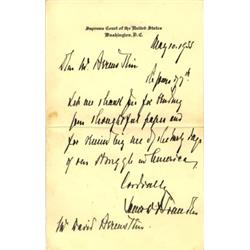 Supreme Court of the United States
Washington, D.C.
May 10, 1935
Dear Mr
Let me thank you for sending
your thoughtful paper and
for reminding me of the early days
of our struggle in America
Cordially
Louis D Brandeis
Mr David